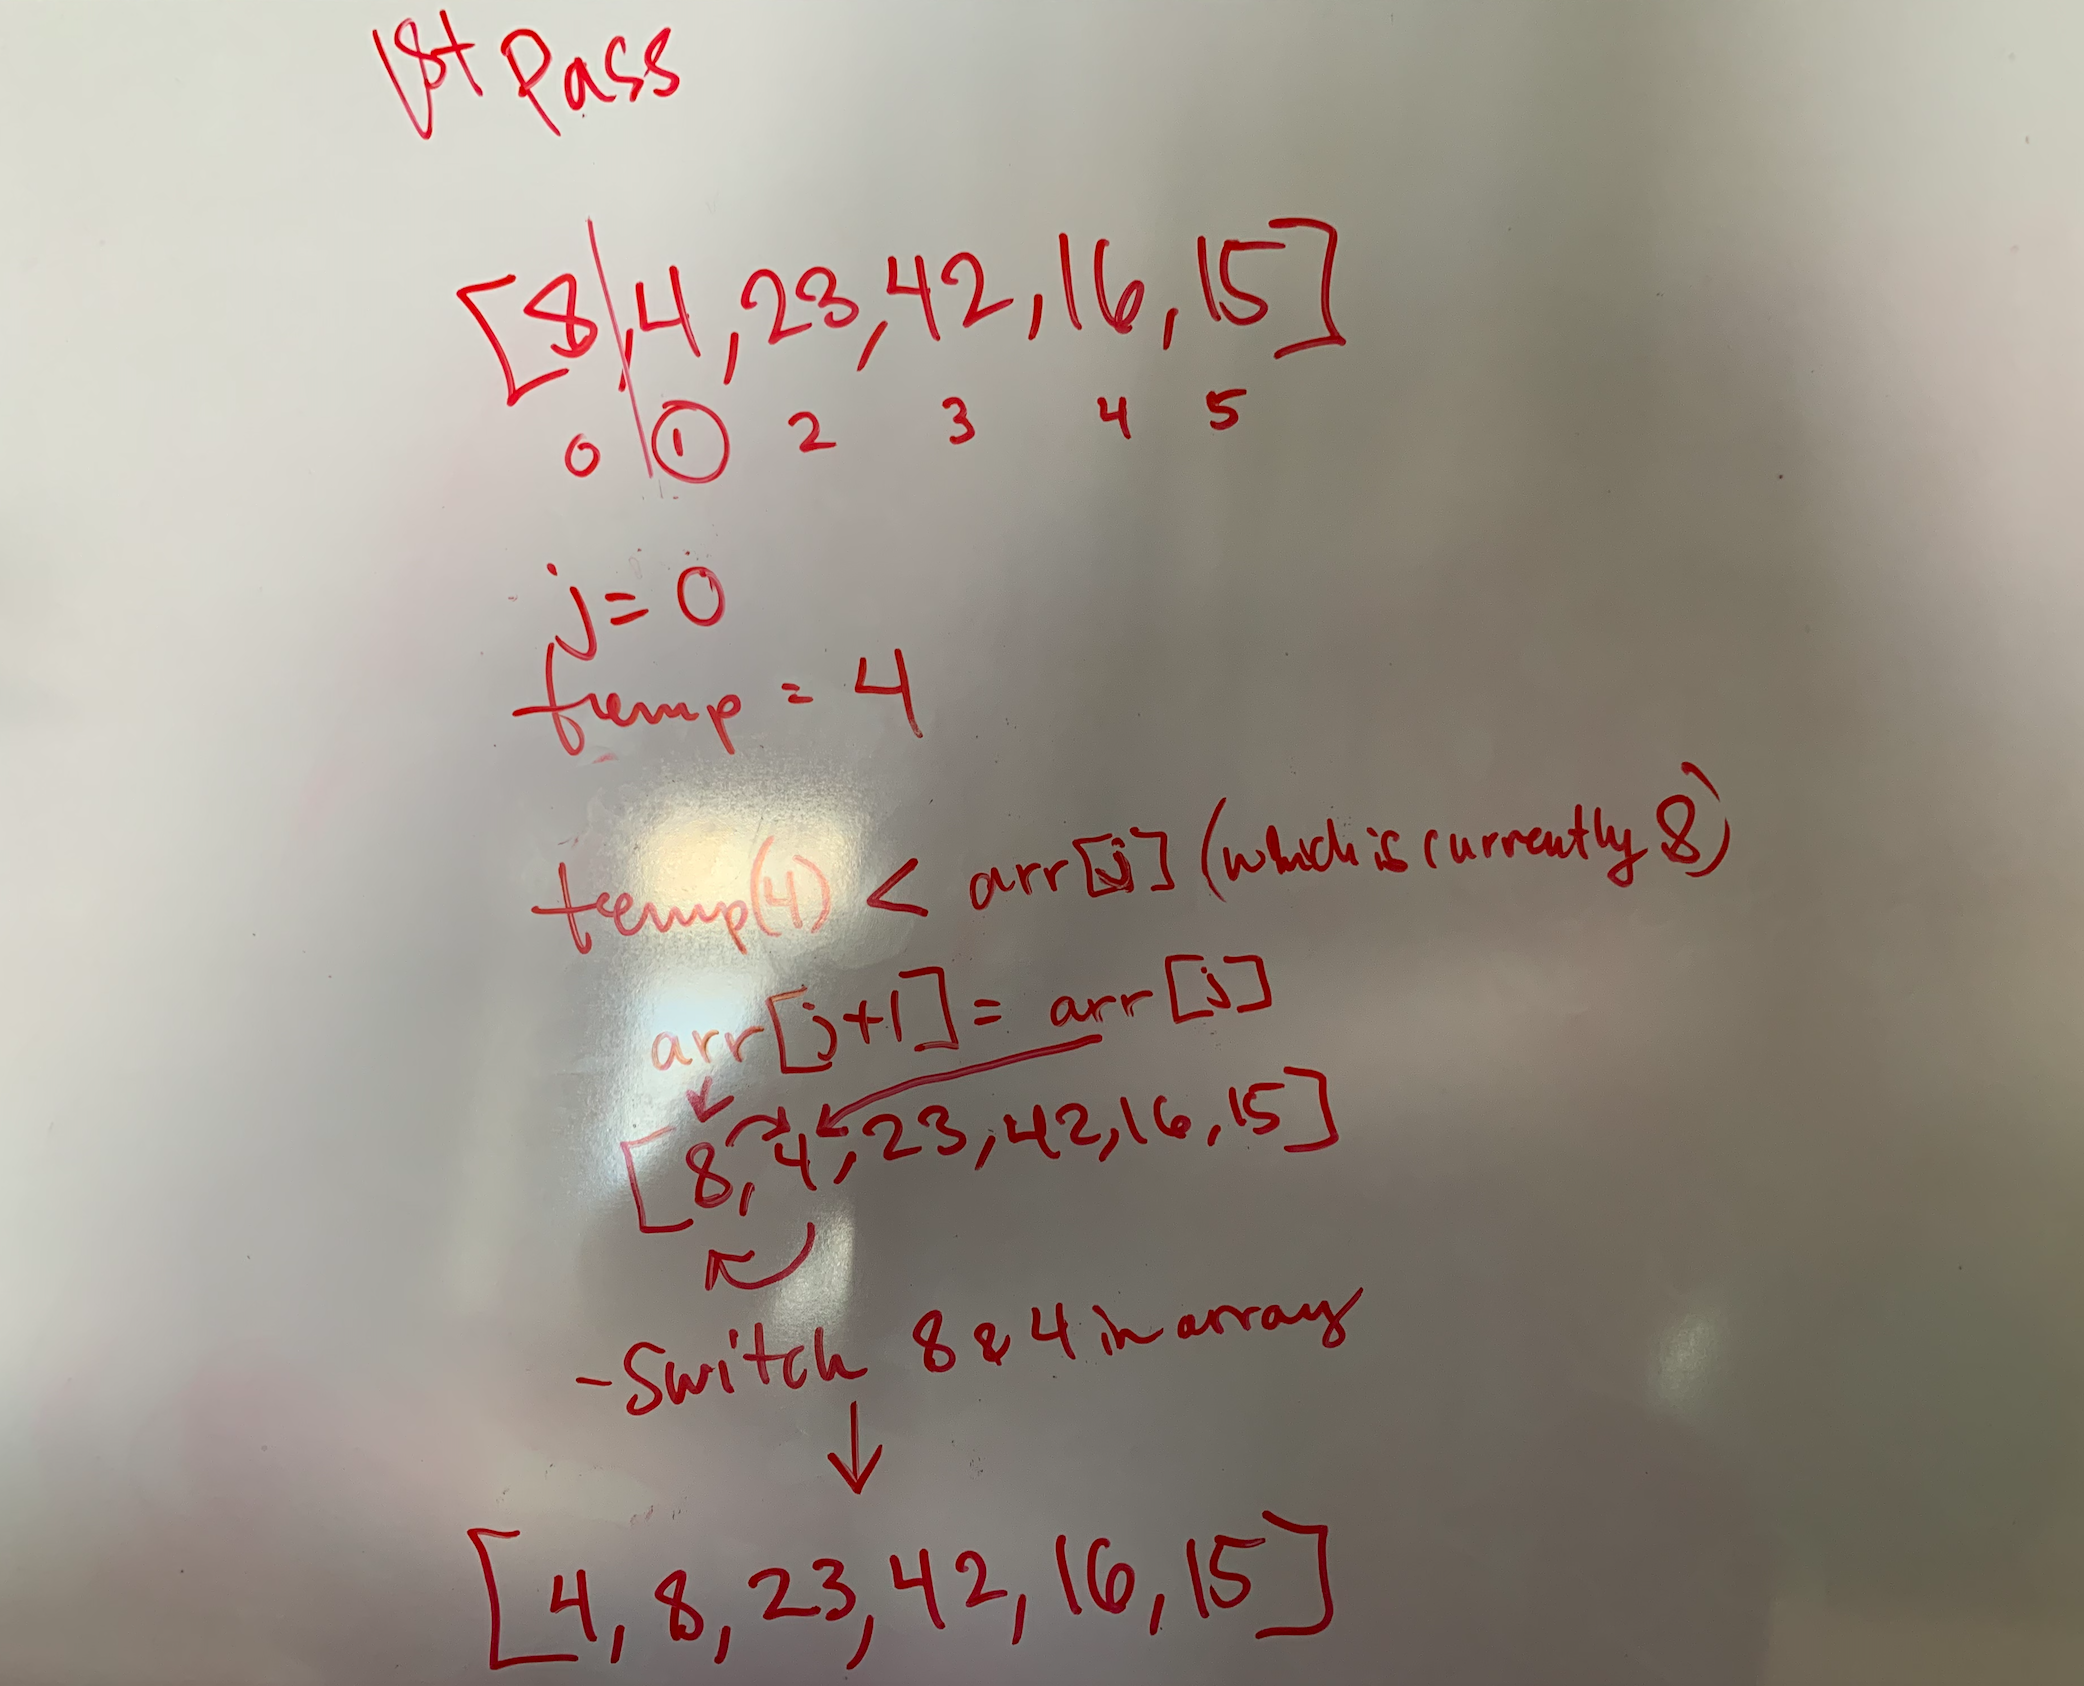 1st Pass
[8,4,23,42,16,15]
0 1 2 3 4 5
j=0
temp = 4
temp(4) < arr[j] (which is currently 8)
arr[j+1] = arr[j]
[8,4,23,42,16,15]
-Switch 8 & 4 in array
[4,8,23,42,16,15]